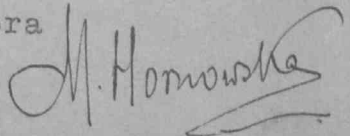 ra
M. Hornowska